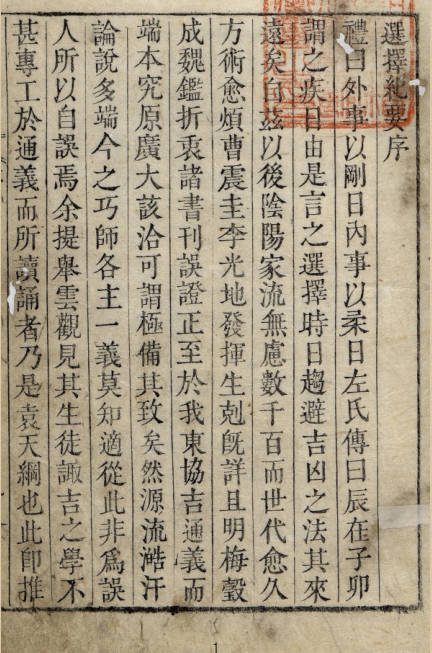 選擇紀要序
禮曰外事以剛日內事以柔日左氏傳曰辰在子卯
謂之疾日由是言之選擇時日趨避吉凶之法其來
遠矣自茲以後陰陽家流無慮數千百而世代愈久
方術愈煩曹震圭李光地發揮生剋旣詳且明梅瑴
成魏鑑折衷諸書刊誤證正至於我東協吉通義而
端本究原廣大該洽可謂極備其致矣然源流澔汗
論說多端今之巧師各主一義莫知適從此非爲誤
人所以自誤焉余提舉雲觀見其生徒諏吉之學不
甚專工於通義而所讀誦者乃是袁天綱也此卽推
1